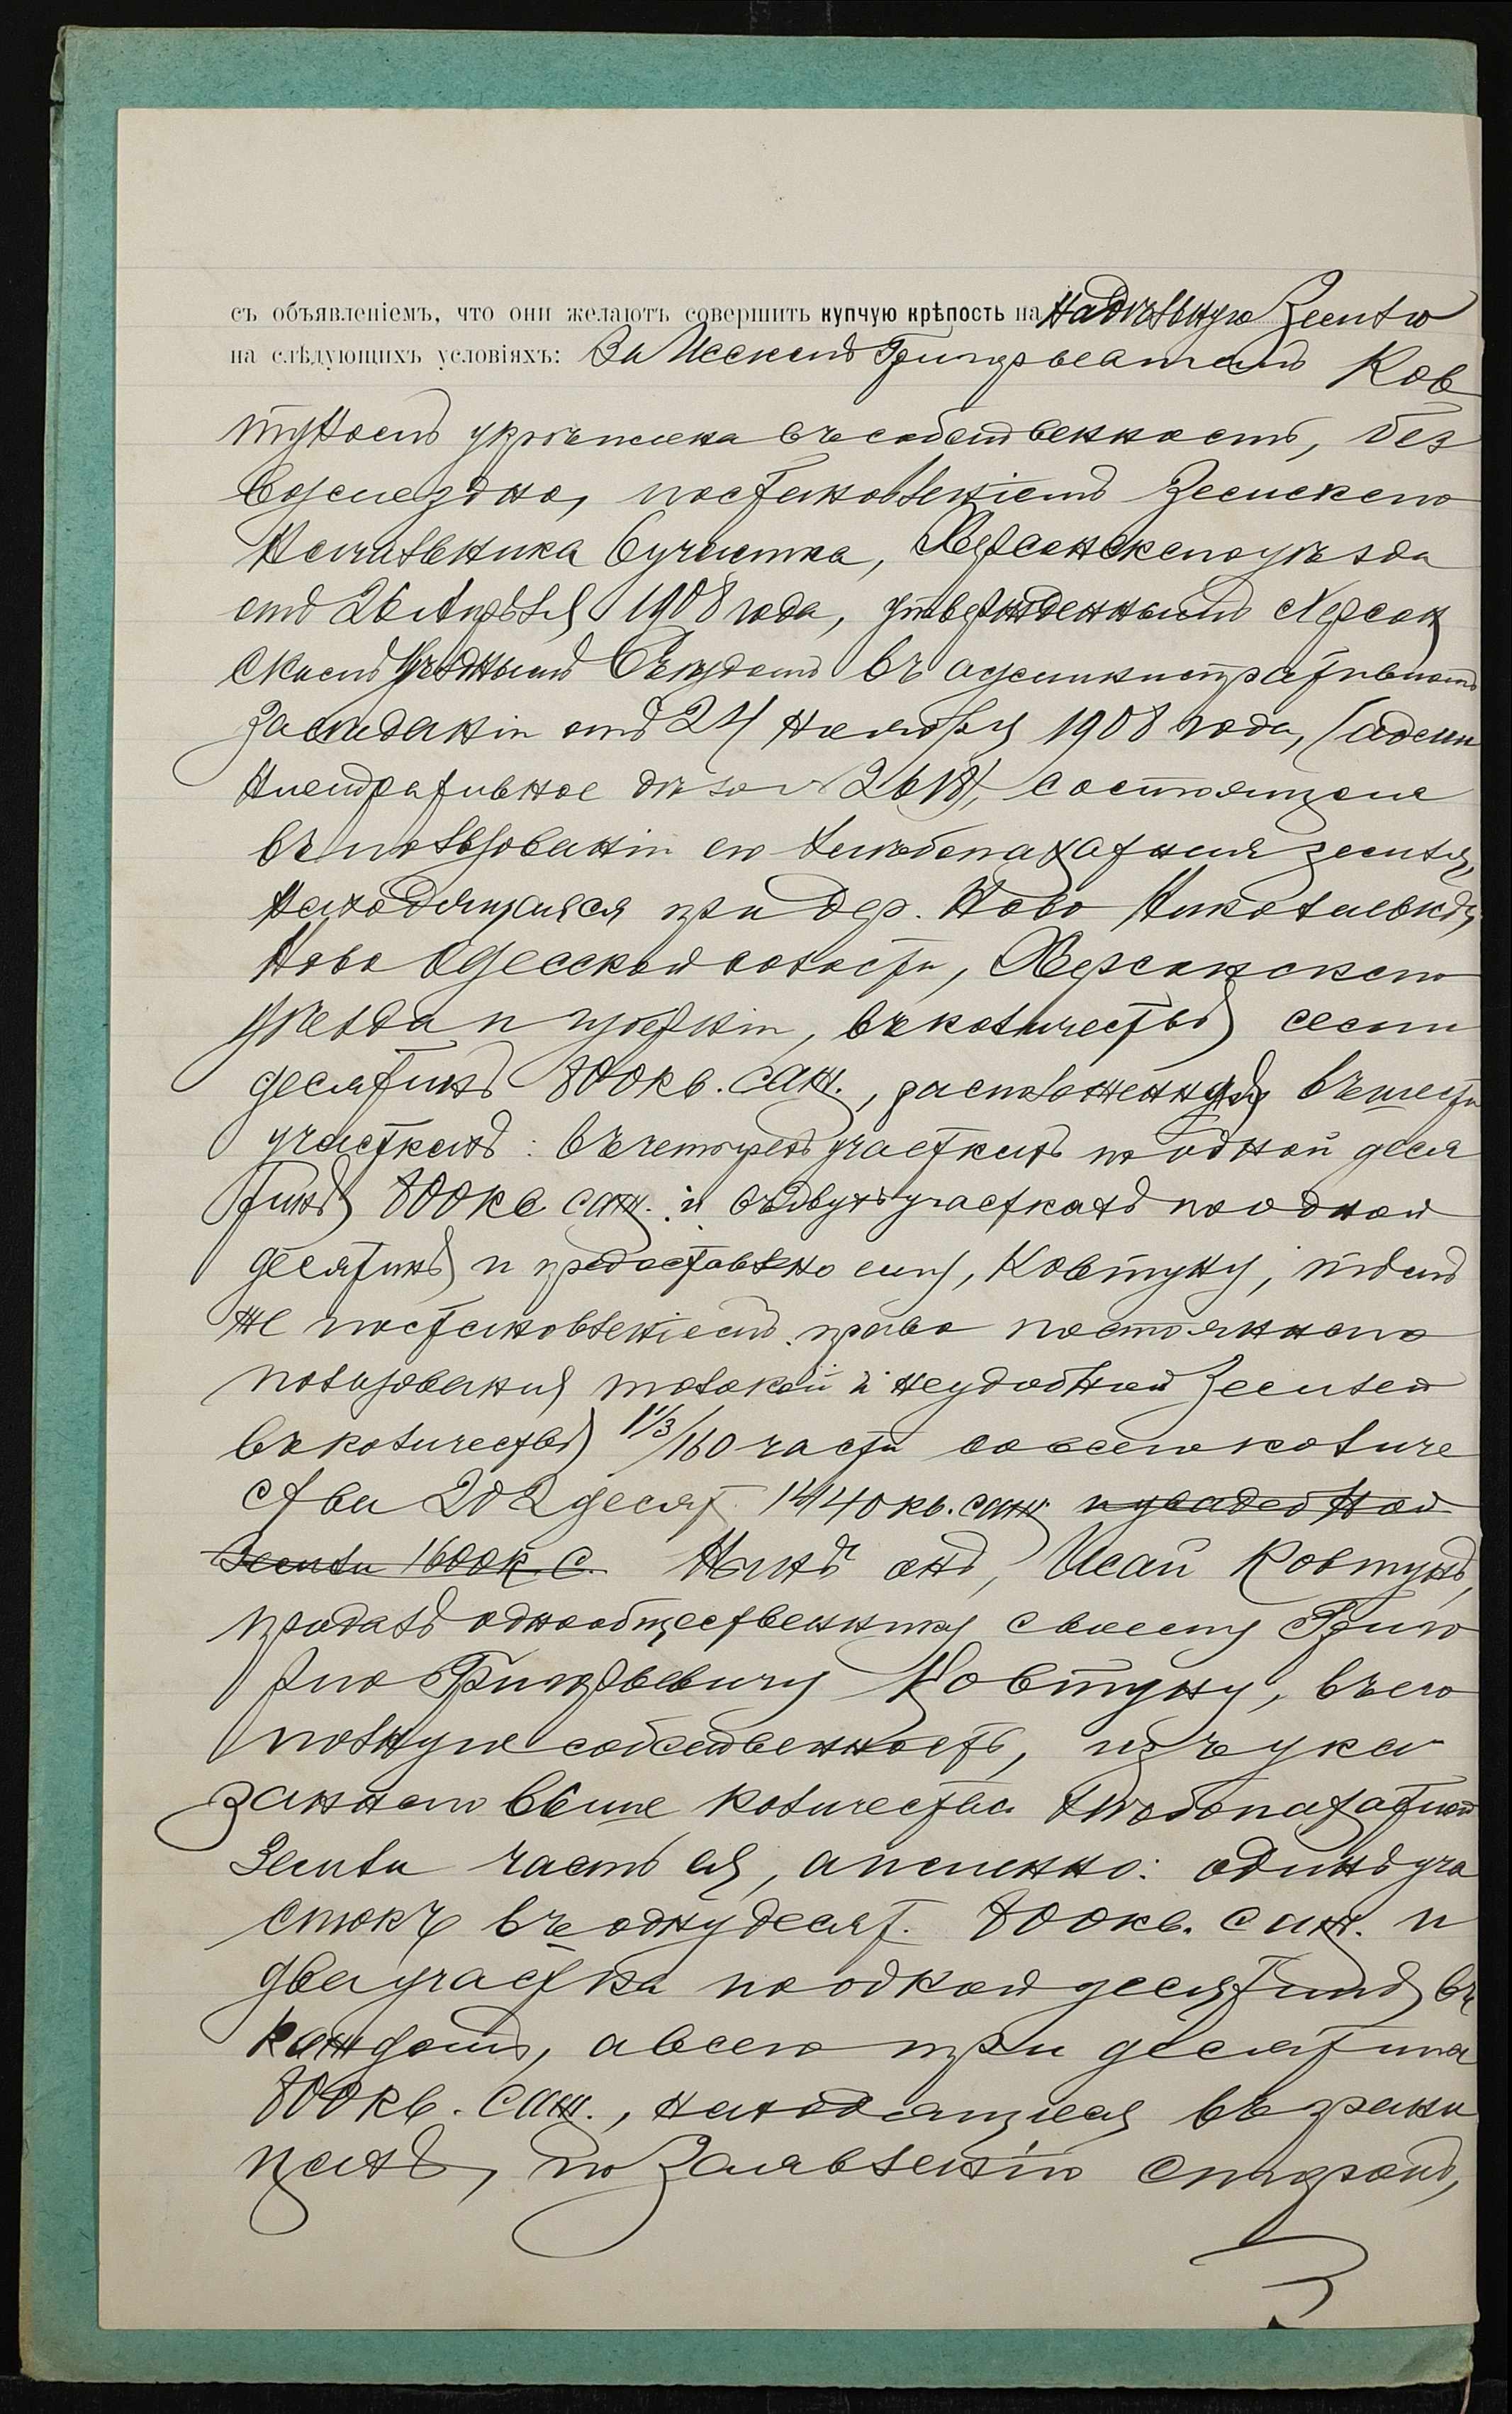 съ объявленіемъ, что они желаютъ совершить купчую крѣпость на надѣльную землю
на слѣдующихъ условіяхъ: За Исаемъ Григорьевымъ Ков
туномъ укрѣплена въ собственность, без
возмездно, постановленіемъ Земскаго
Начальника 6 участка, Херсонскаго уѣзда
отъ 26 Апрѣля 1908 года, утвержденнымъ Херсон
скимъ Уѣзднымъ Съѣздомъ въ административномъ
засѣданіи отъ 24 ноября 1908 года, (адми
нистративное дѣло №), состоящая
въ пользованіи его хлѣбопахатная земля,
находящаяся при дер. Ново Николаевкѣ,
Ново Одесской волости, Херсонскаго
уѣзда и губерніи, въ количествѣ семи
десятинъ 800 кв. саж., расположенная въ шести
участкахъ: въ четырехъ участкахъ по одной деся
тинѣ 800 кв. саж. и въ двухъ участкахъ по одной
десятинѣ и предоставлено ему, Ковтуну, тѣмъ
же постановленіемъ право постояннаго
пользованія толокой и неудобной землей
въ количествѣ 1 1/3/160 части со всего количе
ства 202 десят. 1440 кв. саж. и усадебной
земли 1600 к. с. Нынѣ онъ, Исай Ковтунъ,
продалъ однообщественнику своему Григо
рію Григорьевичу Ковтуну, въ его
полную собственность, изъ ука
заннаго выше количества хлѣбопахатной
земли часть ея, а именно: одинъ уча
стокъ въ одну десят. 800 кв. саж. и
два участка по одной десятинѣ въ
каждомъ, а всего три десятины
800 кв. саж., находящіеся въ грани
цахъ, по заявленію сторонъ,